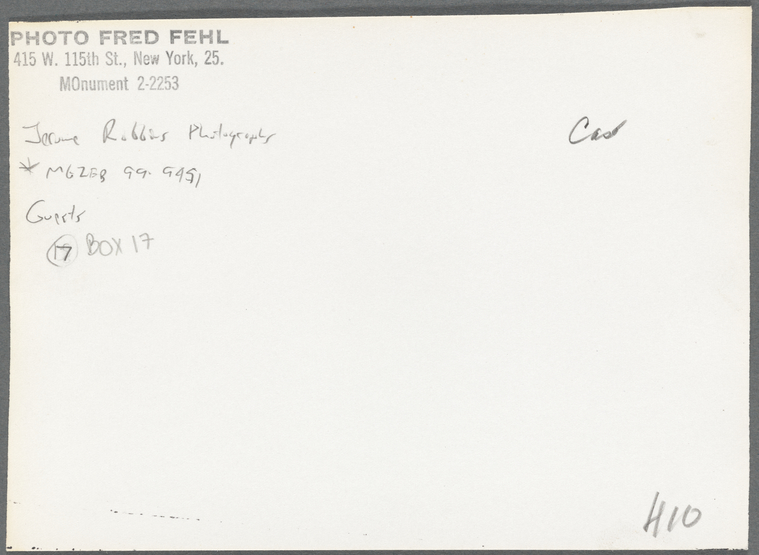 PHOTO FRED FEHL
415 W. 115th St., New York, 25.
MOnument 2-2253
Jerome Robbins Photographs
Cast
* MGZEB 99-9451
Guests
17 BOX 17
410